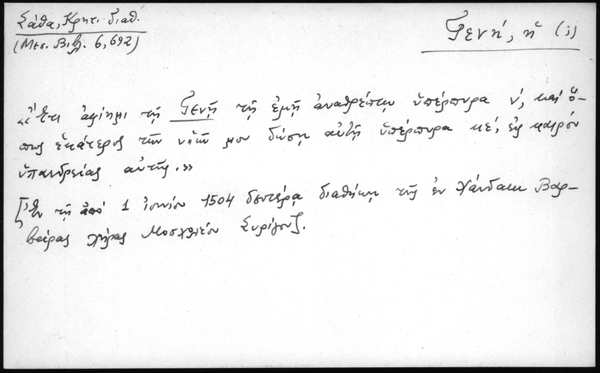 Σάθα, Κρητ. διαθ.
(Μεσ. Βιβλ. 6, 692)
Γενή, ἡ (;)
«Ἔτι ἀφίημι τῇ Γενῇ τῇ ἐμῇ ἀναθρέπτῃ ὑπέρπυρα ν΄, καὶ ὅ-
πως ἑκάτερος τῶν υἱῶν μου δώσῃ αὐτῇ ὑπέρπυρα κε΄, εἰς καιρὸν
ὑπανδρείας αὐτῆς.»
[Ἐν τῇ ἀπὸ 1 ἰουνίου 1504 δευτέρᾳ διαθήκῃ τῆς ἐν Χάνδακι Βαρ-
βάρας χήρας Μοσχολέου